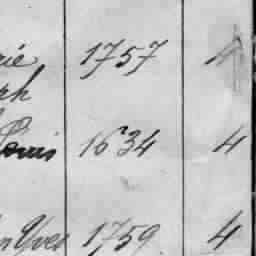 rie 1757 4
ph
Louis 1634 4
n Yves 1759 4